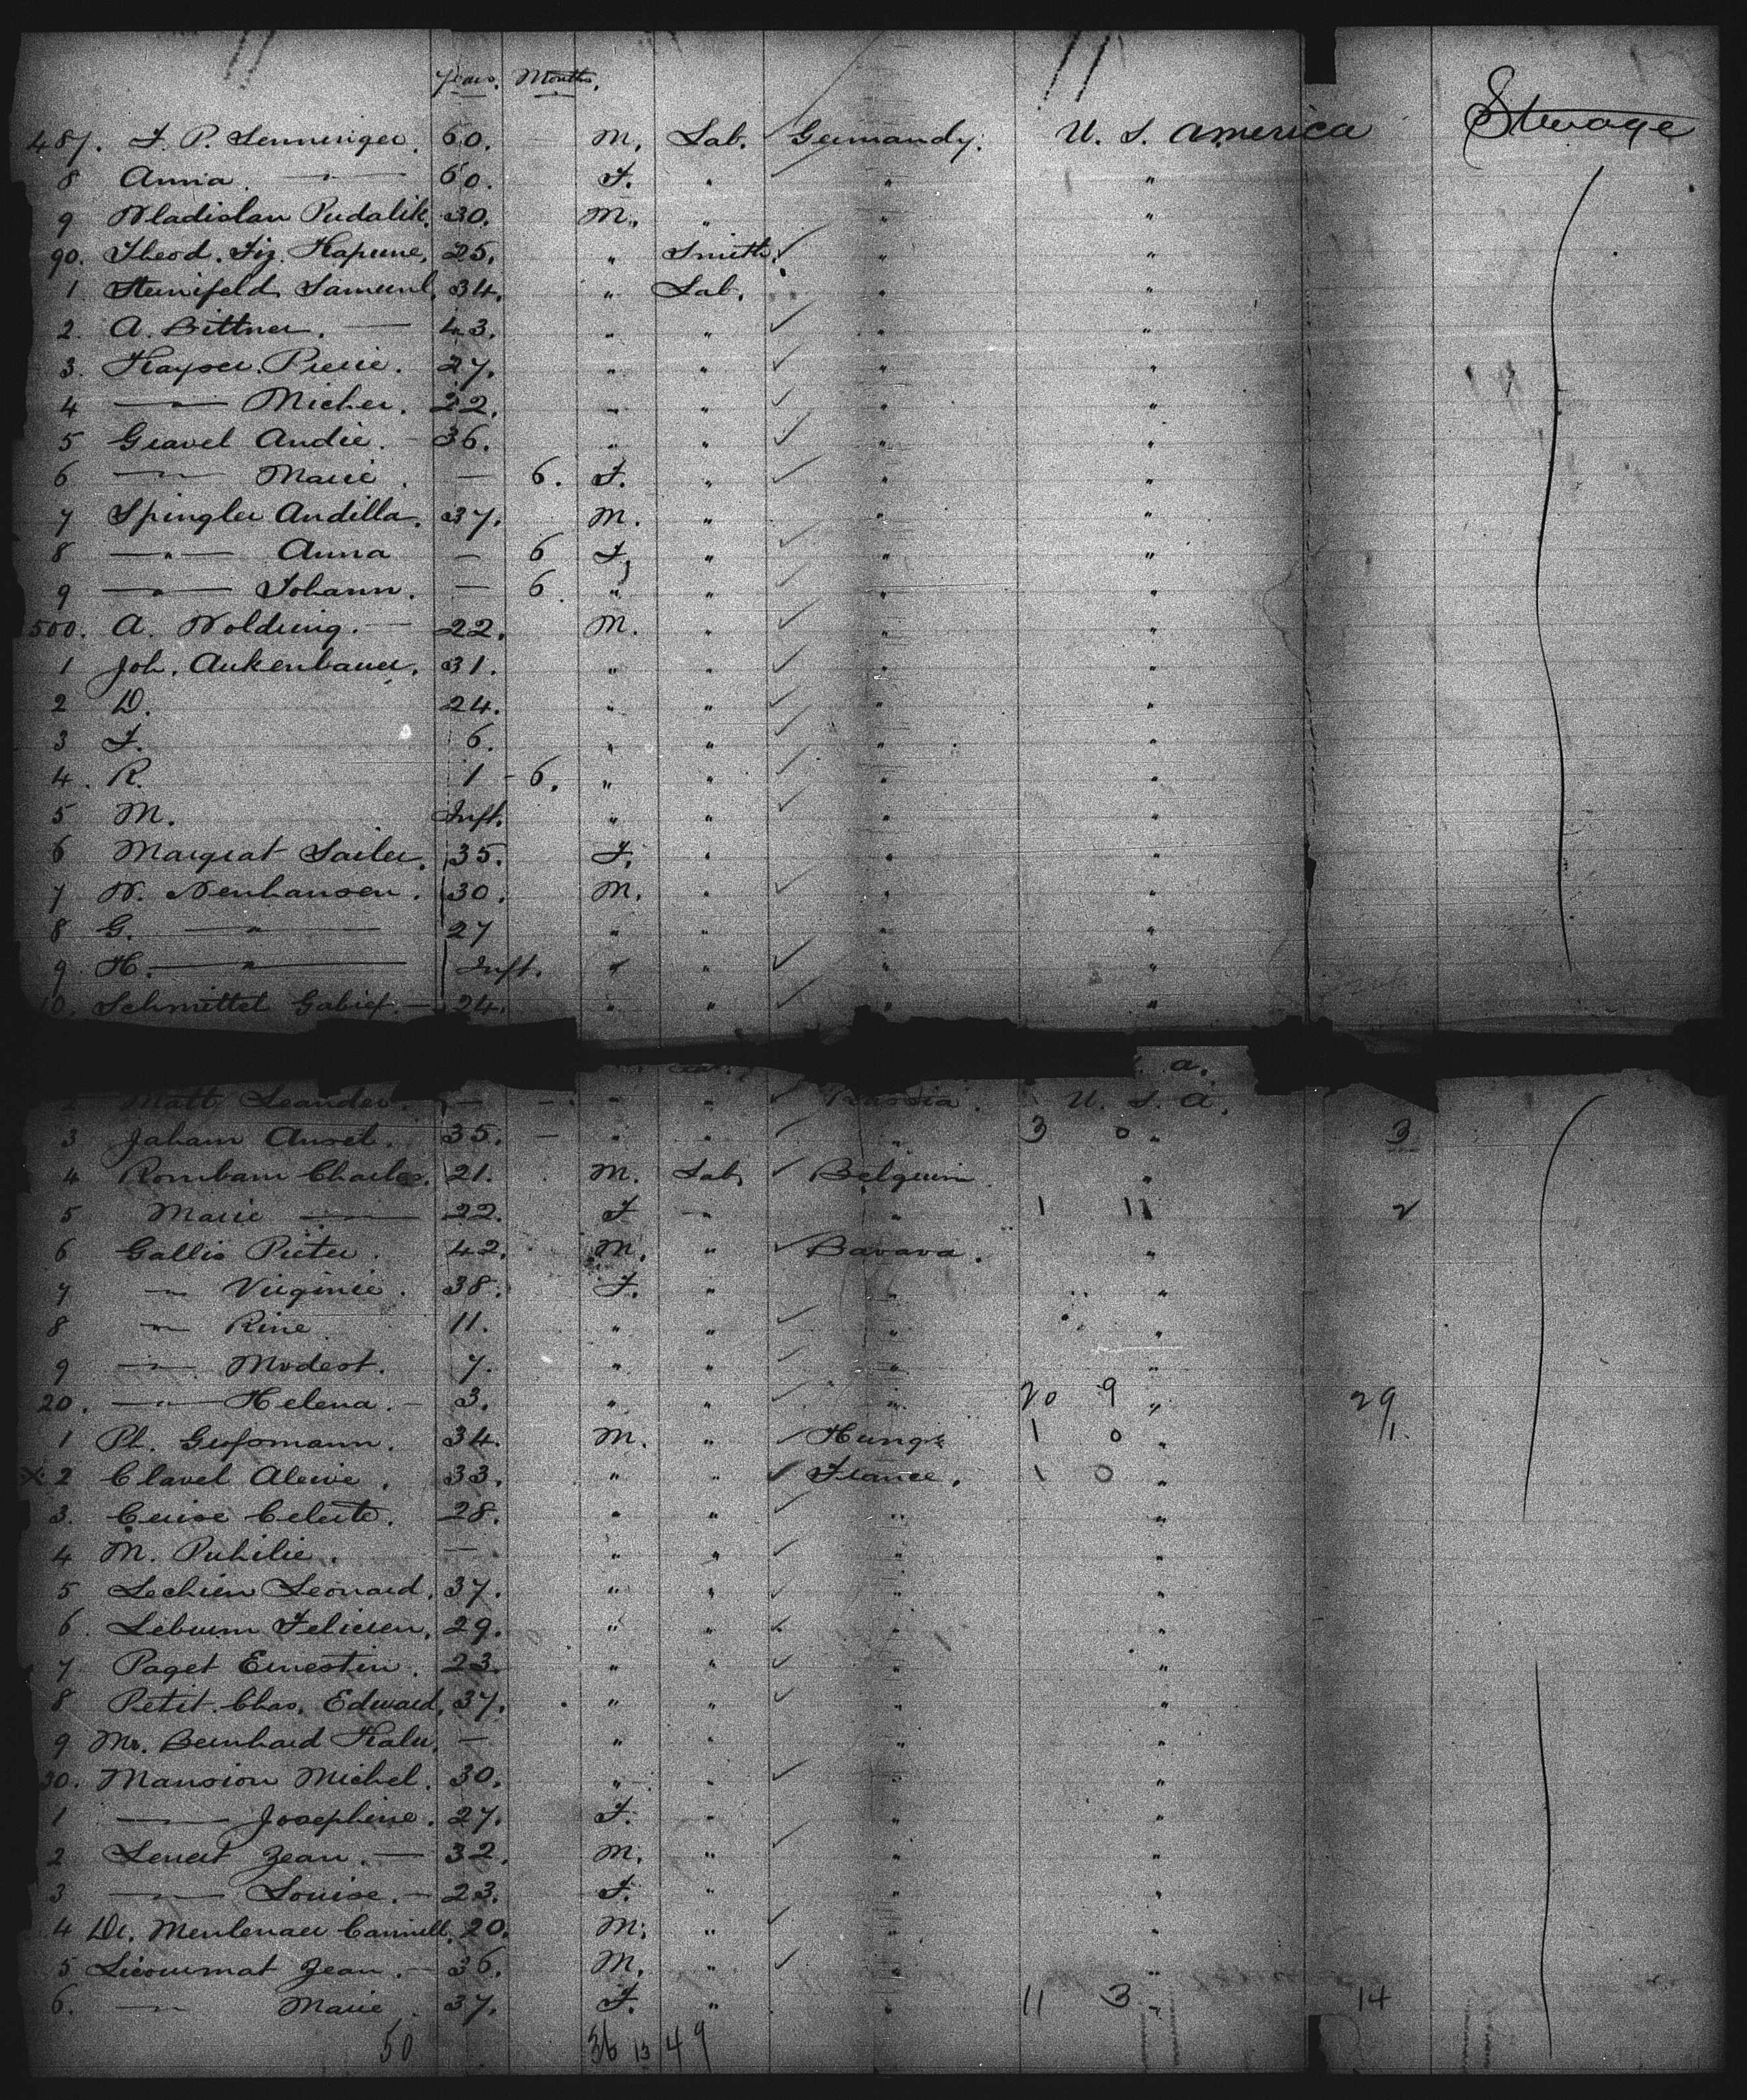 11 11
Years. Months.
487. F. P. Senninger. 60. M. Lab. Germandy. U. S. America Steerage
8 Anna. — " — 60. F. " " "
9 Wladislaw Pudalik. 30. M. " " "
90. Theod. Fiz. Hapune, 25. " Smith. " "
1 Steinfeld Samuel, 34. " Lab. " "
2. A. Bittner. — 43. " " " "
3. Kayser. Pierre. 27. " " " "
4 — " — Micher. 22. " " " "
5 Gravel Andre. - 36. " " " "
6 — " — Marie. — 6. F. " " "
7 Spingler Andilla. 37. M. " " "
8 — " — Anna — 6 F. " " "
9 — " — Johann. — 6. " " " "
500. A. Woldring. — 22. M. " " "
1 Joh. Aukenbauer. 31. " " " "
2 D. 24. " " " "
3 F. 6. " " " "
4. R. 1 - 6. " " " "
5 M. Inft. " " " "
6 Margrat Sailer. 35. F. " " "
7 W. Nenhansen. 30. M. " " "
8 G. — " — 27 " " " "
9. H. — " — Inft. " " " "
10. Schmittel Gabief. — 24. " " " "
a.
2 Matt Leander. — - " " Russia. U. S. A.
3 Jaham Ansel. 35. — " " " 3 0 " 3
4 Rombam Charles. 21. M. Lab. Belguim. "
5 Marie — " — 22. F " " 1 11 2
6 Gallis Pieter. 42. M. " Bavava. "
7 — " — Virginie. 38. F. " " "
8 — " — Rine. 11. " " " "
9 — " — Modest. 7. " " " "
20. — " — Helena. - 3. " " " 20 9 " 29
1 Ph. Grossmann. 34. M. " Hung. 1 0 " 1.
X 2 Clavel Alewie. 33. " " France. 1 0 "
3. Cerise Celeste. 28. " " " "
4 M. Puhilie. — " " " "
5 Lechien Leonard. 37. " " " "
6. Lebrum Felicien. 29. " " " "
7 Paget Ernestin. 23. " " " "
8 Petit. Chas. Edward. 37. " " " "
9 Mr. Bernhard Kalu. — " " " "
30. Mansion Michel. 30. " " " "
1 — " — Josephine. 27. F. " " "
2 Lenert Jean. — 32. M. " " "
3 — " — Louise. - 23. F. " " "
4 Dr. Menlenaer Camill. 20. M. " " "
5 Licourmat Jean. - 36. M. " " "
6. — " — Marie. 37. F. " " 11 3 " 14
50 36 13 49